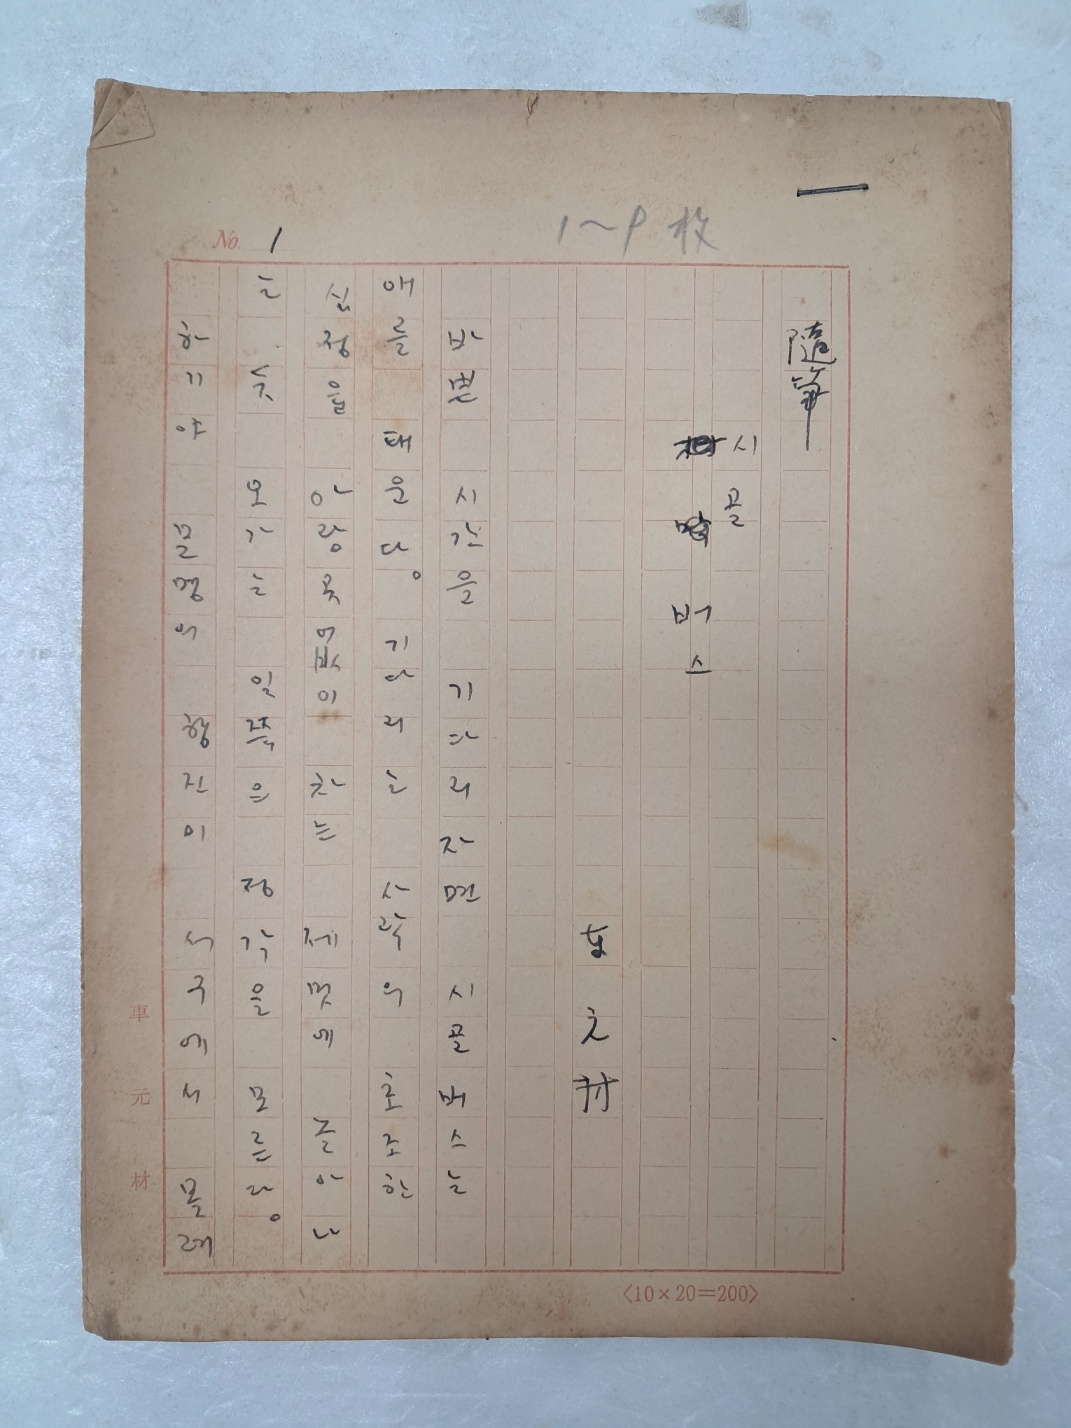 No. 1
1~9 枚
隨筆
시골
버스
车元材
바쁜 시간을 기다리자면 시골 버스는
애를 태운다。 기다리는 사람의 초조한
심정을 아랑곳없이 차는 제멋에 놀아나
는 오가는 정각을 모르라。
하기야 문명의 행진이 서구에서 몰래
車元材
〈10×20=200〉